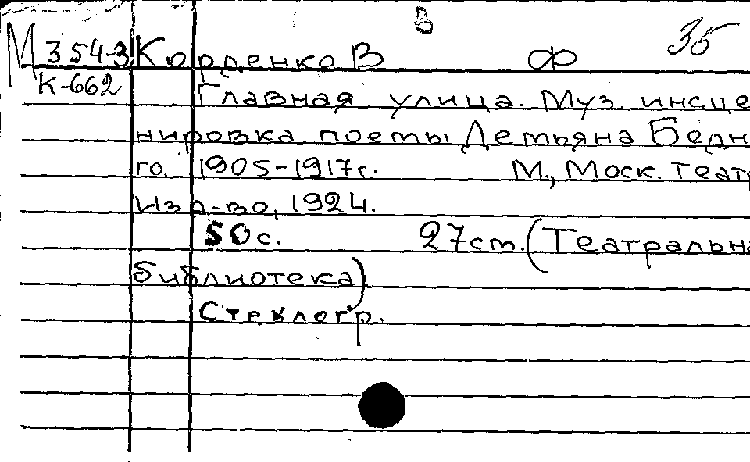 В
35
М 354-3 Корденко В Ф
К-662
Главная улица. Муз. инсце
нировка поэмы Демьяна Бедн
го. 1905-1917г. М., Моск. Театр
Изд-во, 1924.
50с. 27cm. (Театральна
библиотека)
Стеклогр.